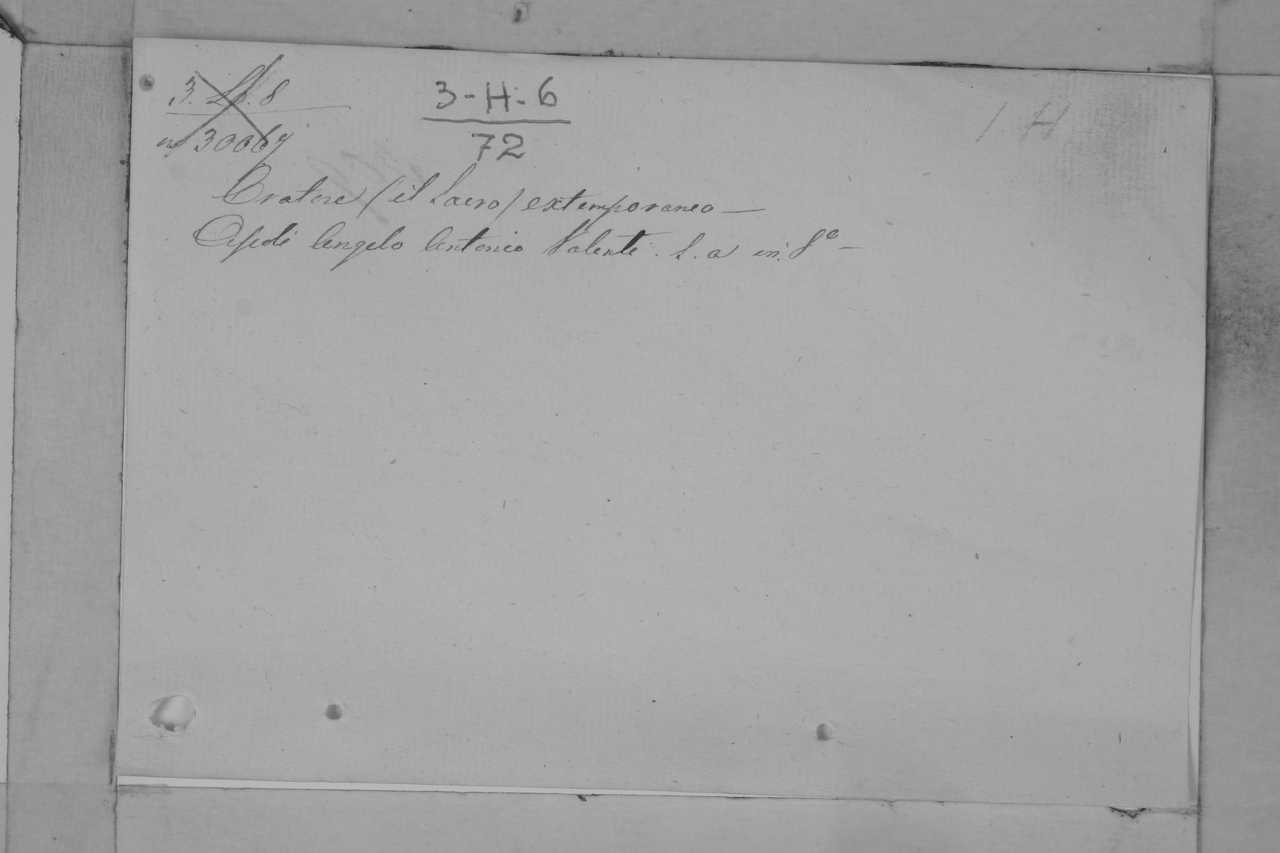 3. 8
30067
3-H-6
72
1 H
Oratore (il Sacro) extemporaneo —
Angelo Antonio Valente. S. a in. 8º —